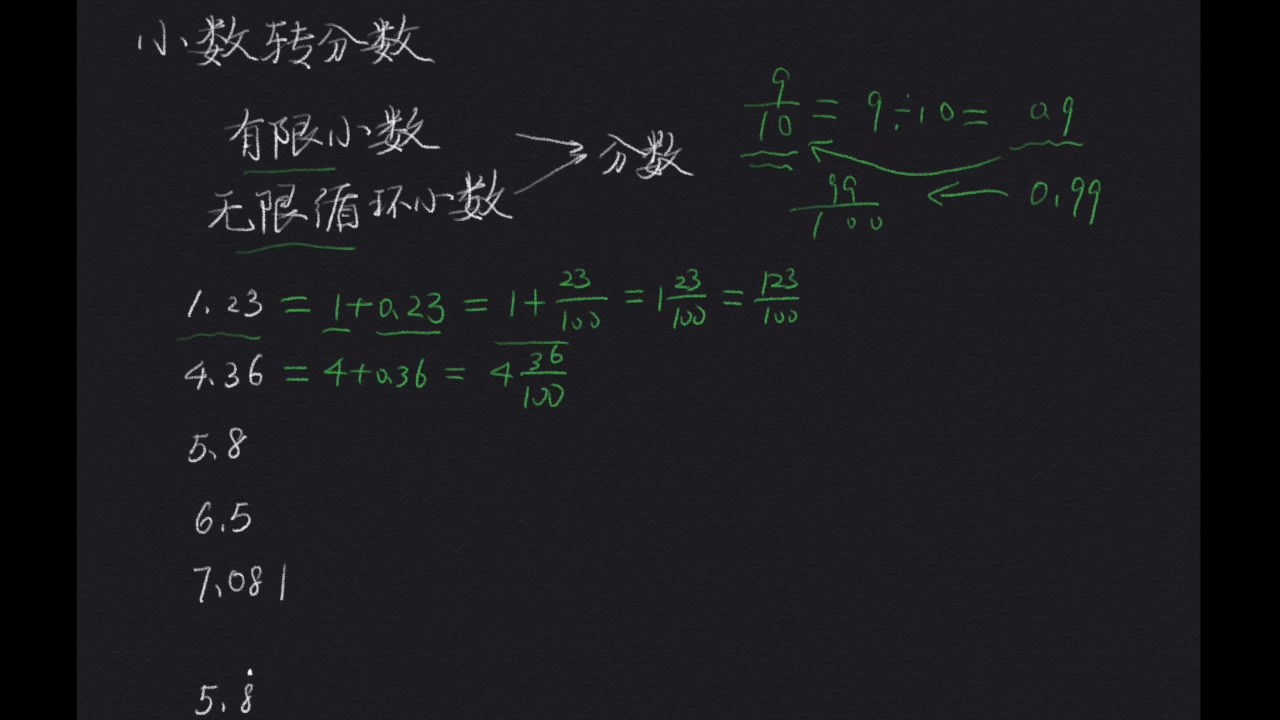 小数转分数
有限小数
无限循环小数
分数
9/10 = 9÷10 = 0.9
99/100 ← 0.99
1.23 = 1+0.23 = 1+23/100 = 1 23/100 = 123/100
4.36 = 4+0.36 = 4 36/100
5.8
6.5
7.081
5.8̇